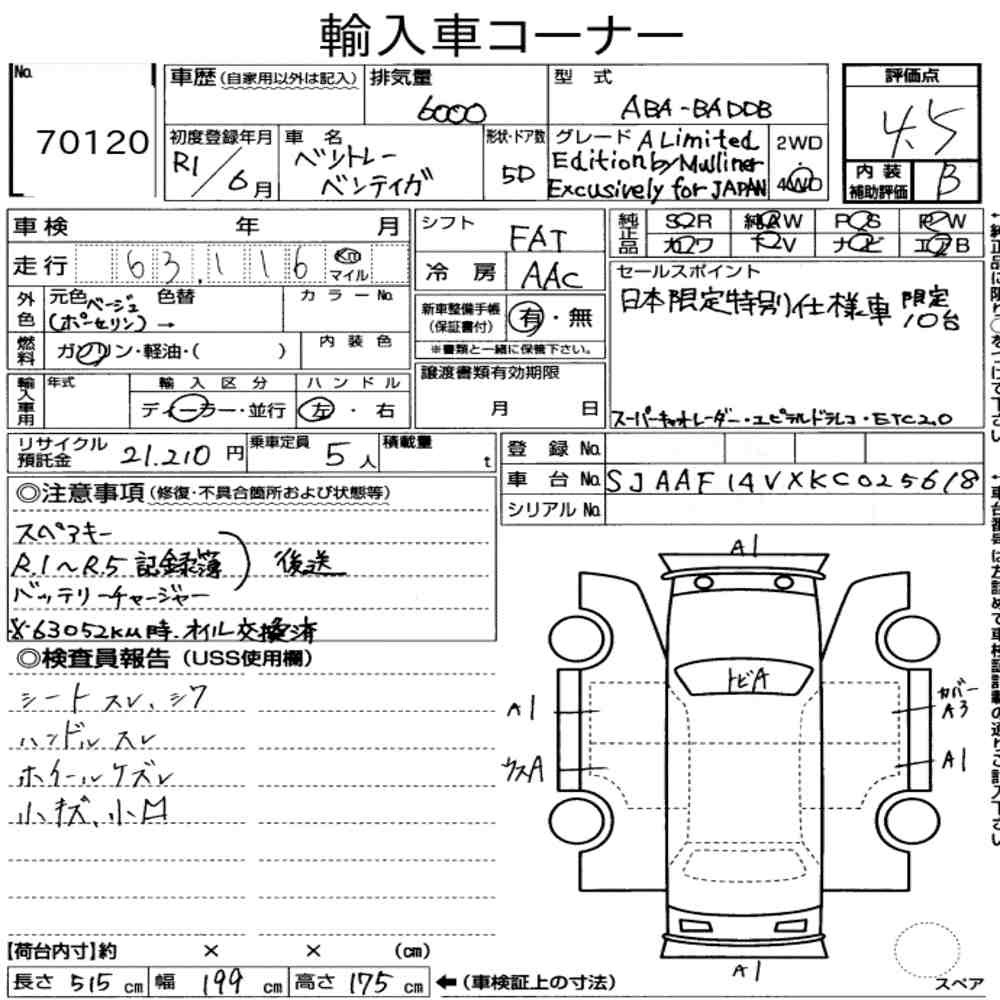 輸入車コーナー
No.
70120
車歴(自家用以外は記入)
排気量
6000
型 式
ABA-BADDB
評価点
4.5
初度登録年月
R1/6月
車 名
ベントレー
ベンティガ
形状・ドア数
5D
グレード A Limited
Edition by Mulliner
Excusively for JAPAN
2WD
4WD
内装
補助評価
B
車検 年 月
シフト
FAT
純正品
S・R
純・AW
P・S
P・W
カワ
TV
ナビ
エアB
走行
63,116
km
マイル
冷房
AAC
外色
元色 ベージュ
(ポーセリン) →
色替
カラーNo.
新車整備手帳
(保証書付)
有・無
※書類と一緒に保管下さい。
セールスポイント
日本限定特別仕様車 限定
10台
燃料
ガソリン・軽油・( )
内装色
譲渡書類有効期限
月 日
輸入車用
年式
輸入区分
ディーラー・並行
ハンドル
左・右
スーパーキャットレーダー・ユピテルドラレコ・ETC2.0
リサイクル
預託金
21.210円
乗車定員
5人
積載量
t
登録No.
車台No.
SJAAF14VXKC025618
シリアルNo.
◎注意事項(修復・不具合箇所および状態等)
スペアキー
R.1〜R.5 記録簿
バッテリーチャージャー
後送
※63052km時.オイル交換済
◎検査員報告(USS使用欄)
シート スレ、シワ
ハンドル スレ
ホイールケズレ
小キズ、小凹
A1
トビA
A1
ウスA
カバー
A3
A1
A1
【荷台内寸】約 × × (cm)
長さ 515 cm 幅 199 cm 高さ 175 cm ←(車検証上の寸法)
スペア